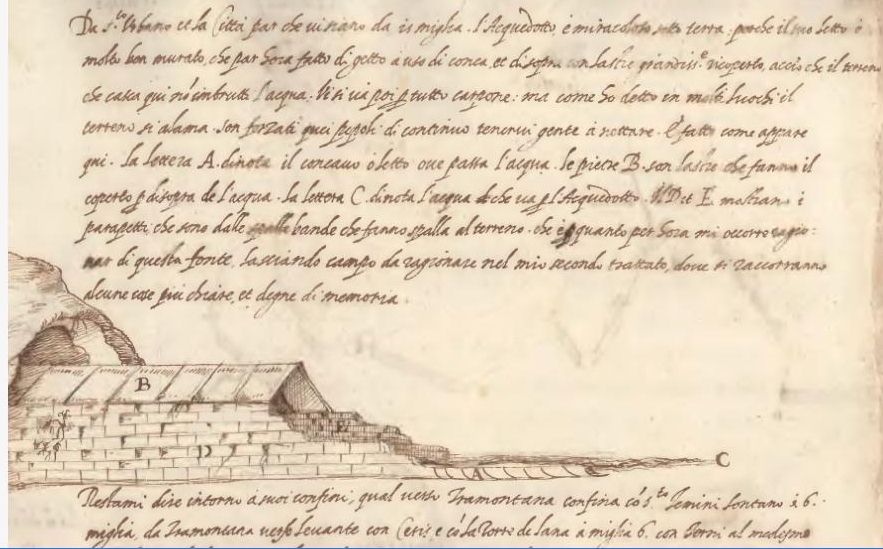 Da S.to Urbano et la Città par che vi siano da is miglia. l'Acquedotto, è miracoloso sotto terra: perche il suo letto è
molto bon murato, che par hora fatto di getto à uso di conca, et di sopra con lastre grandiss.e ricoperto, acciò che il terreno
che casca qui nõ imbrutti l'acqua. Vi si và poi p tutto carpone: ma come ho detto in molti luochi il
terreno si alama. son forzati quei popoli di continuo tenervi gente à nottare. È fatto come appare
qui. la lettera A. dinota il concavo ò letto ove passa l'acqua. le pietre B. son lastre che fanno il
coperto p disopra de l'acqua. la lettera C. dinota l'acqua che và p l'Acquedotto. D et E mostrano i
parapetti che sono dalle bande che fanno spalla al terreno. che è quanto per hora mi occorre ragio:
nar di questa fonte, lasciando campo da ragionare nel mio secondo trattato, dove si raccorranno
alcune cose più chiare, et degne di memoria.
B
E
D
A
C
Restami dire intorno à suoi confini, qual verso Tramontana confina cõ S.to Iemini lontano à 6.
miglia, da Tramontana verso Levante con Cesis e cõ la Torre di lana à miglia 6. con Terni al medesmo